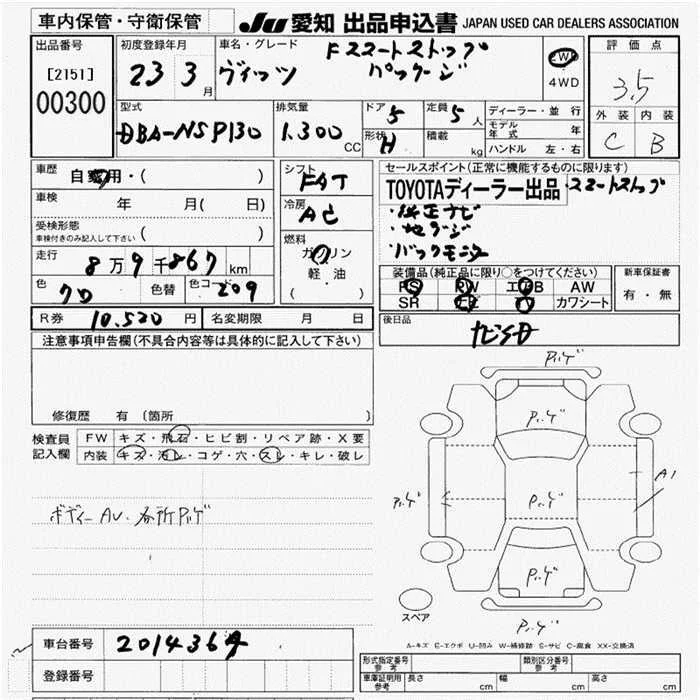 車内保管・守衛保管
JU 愛知 出品申込書 JAPAN USED CAR DEALERS ASSOCIATION
出品番号
[2151]
00300
初度登録年月
23 3月
車名・グレード
Fスマートストップ
ヴィッツ パッケージ
2WD
4WD
評価点
3.5
外装 内装
C B
型式
DBA-NSP130
排気量
1.300 CC
ドア 5
形状 H
定員 5 人
積載 kg
ディーラー・並行
モデル年式 年
ハンドル 左・右
車歴
自家用・( )
車検 年 月( 日)
受検形態
車検付きのみ記入して下さい ( )
走行
8万9千867 km
色 クロ 色替 色コード 209
シフト
FAT
冷房
AC
燃料
ガソリン
軽・油
( )
セールスポイント(正常に機能するものに限ります)
TOYOTAディーラー出品・スマートストップ
・純正ナビ
・地デジ
・バックモニター
装備品(純正品に限り○をつけてください)
PS PW エアB AW
SR ナビ TV カワシート
新車保証書
有・無
R券 10.520円 名変期限 月 日
後日品
ナビSD
注意事項申告欄(不具合内容等は具体的に記入して下さい)
修復歴 有(箇所 )
検査員
記入欄
FW キズ・飛石・ヒビ割・リペア跡・X要
内装 キズ・汚レ・コゲ・穴・スレ・キレ・破レ
ボディーAU・各所Pゲ
Pゲ
Pゲ
Pゲ
Pゲ
A1
Pゲ
Pゲ
スペア
A-キズ E-エクボ U-凹み W-補修跡 S-サビ C-腐食 XX-交換済
車台番号 2014364
登録番号
形式指定番号 参考
類別区分番号 参考
車庫証明用 参考 長さ cm 幅 cm 高さ cm